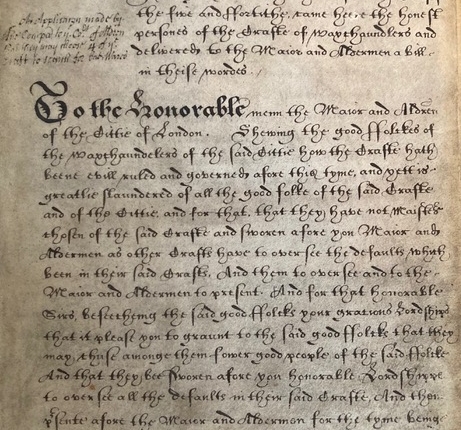 An Application made by
the Company of
they may chose 4 of
to be
the five and ffortithe, came heere the honest
persones of the Crafte of Waxchaundlers and
delivered to the Maior and Aldermen a bill
in theise wordes.
To the Honorable menn the Maior and Aldren
of the Cittie of London. Shewing the good ffolckes of
the Waxchaundelers of the said Cittie how the Crafte hath
beene evill ruled and governed afore this tyme, and yett is
greatlie slaundered of all the good folke of the said Crafte
and of the Cittie, and for that, that they have not Maisters
chosen of the said Crafte and sworen afore you Maior and
Aldermen as other Crafts have to oversee the defaults which
been in their said Craft. And them to oversee and to the
Maior and Aldermen to present. And for that honorable
Sirs, beseecheing the said good ffolcks your gratious Lordshipps
that it please you to graunt to the said good ffolcks that they
may, chuse amonge them fower good people of the said ffolcke
And that they bee sworen afore you honorable Lordshippe
to oversee all the defaults in their said Crafte, And them
psente afore the Maior and Aldermen for the tyme being